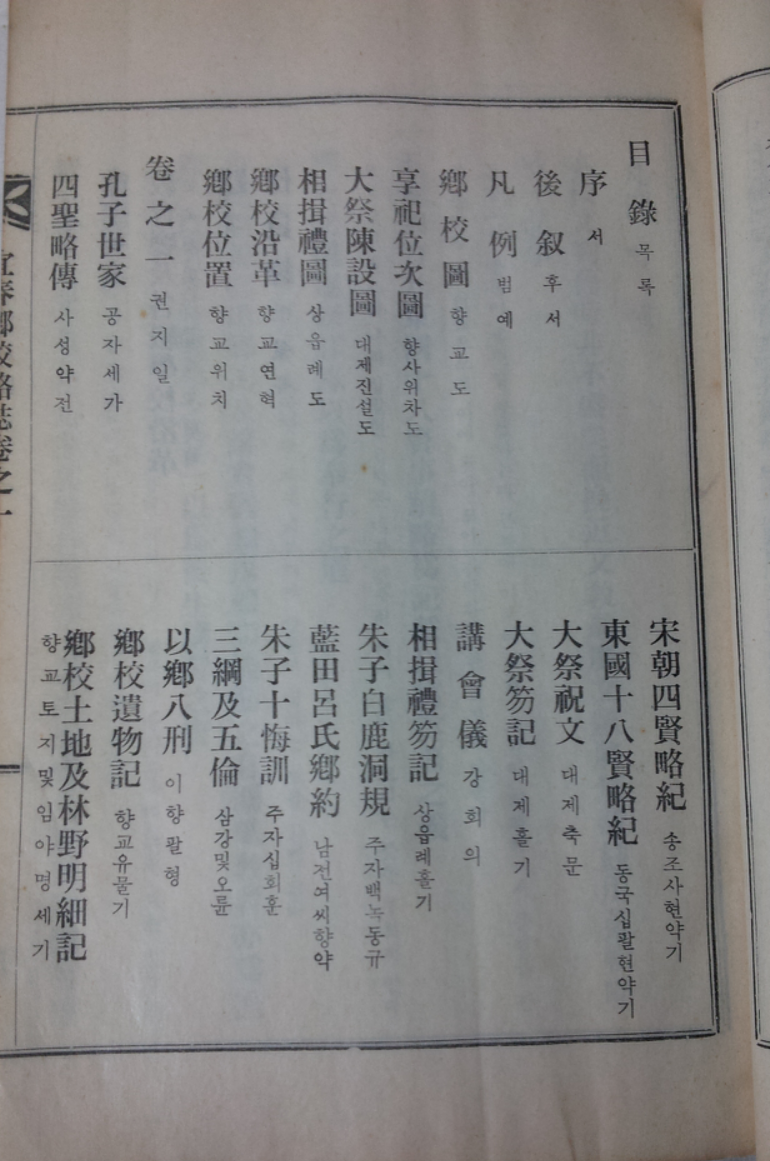 目錄 목록
序 서
後叙 후서
凡例 범예
鄕校圖 향교도
享祀位次圖 향사위차도
大祭陳設圖 대제진설도
相揖禮圖 상읍례도
鄕校沿革 향교연혁
鄕校位置 향교위치
卷之一 권지일
孔子世家 공자세가
四聖略傳 사성약전
宋朝四賢略紀 송조사현약기
東國十八賢略紀 동국십팔현약기
大祭祝文 대제축문
大祭笏記 대제홀기
講會儀 강회의
相揖禮笏記 상읍례홀기
朱子白鹿洞規 주자백녹동규
藍田呂氏鄕約 남전여씨향약
朱子十悔訓 주자십회훈
三綱及五倫 삼강및오륜
以鄕八刑 이향팔형
鄕校遺物記 향교유물기
鄕校土地及林野明細記
향교토지및임야명세기
宜春鄕校略誌卷之一